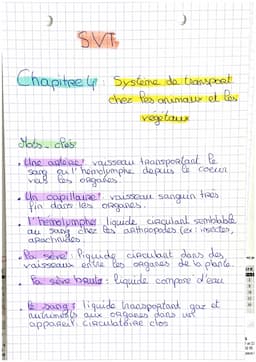 SVT
Chapitre 4 : Système de transport
chez les animaux et les
végétaux
Mots-clés
• Une artère : vaisseau transportant le
sang ou l'hémolymphe depuis le coeur
vers les organes.
• Un capillaire : vaisseau sanguin très
fin dans les organes.
• l'hémolymphe : liquide circulant semblable
au sang chez les arthropodes (ex : insectes,
arachnides.
• La sève : liquide circulant dans des
vaisseaux entre les organes de la plante.
• La sève brute : liquide composé d'eau
• Le sang : liquide transportant gaz et
nutriments aux organes dans un
appareil circulatoire clos